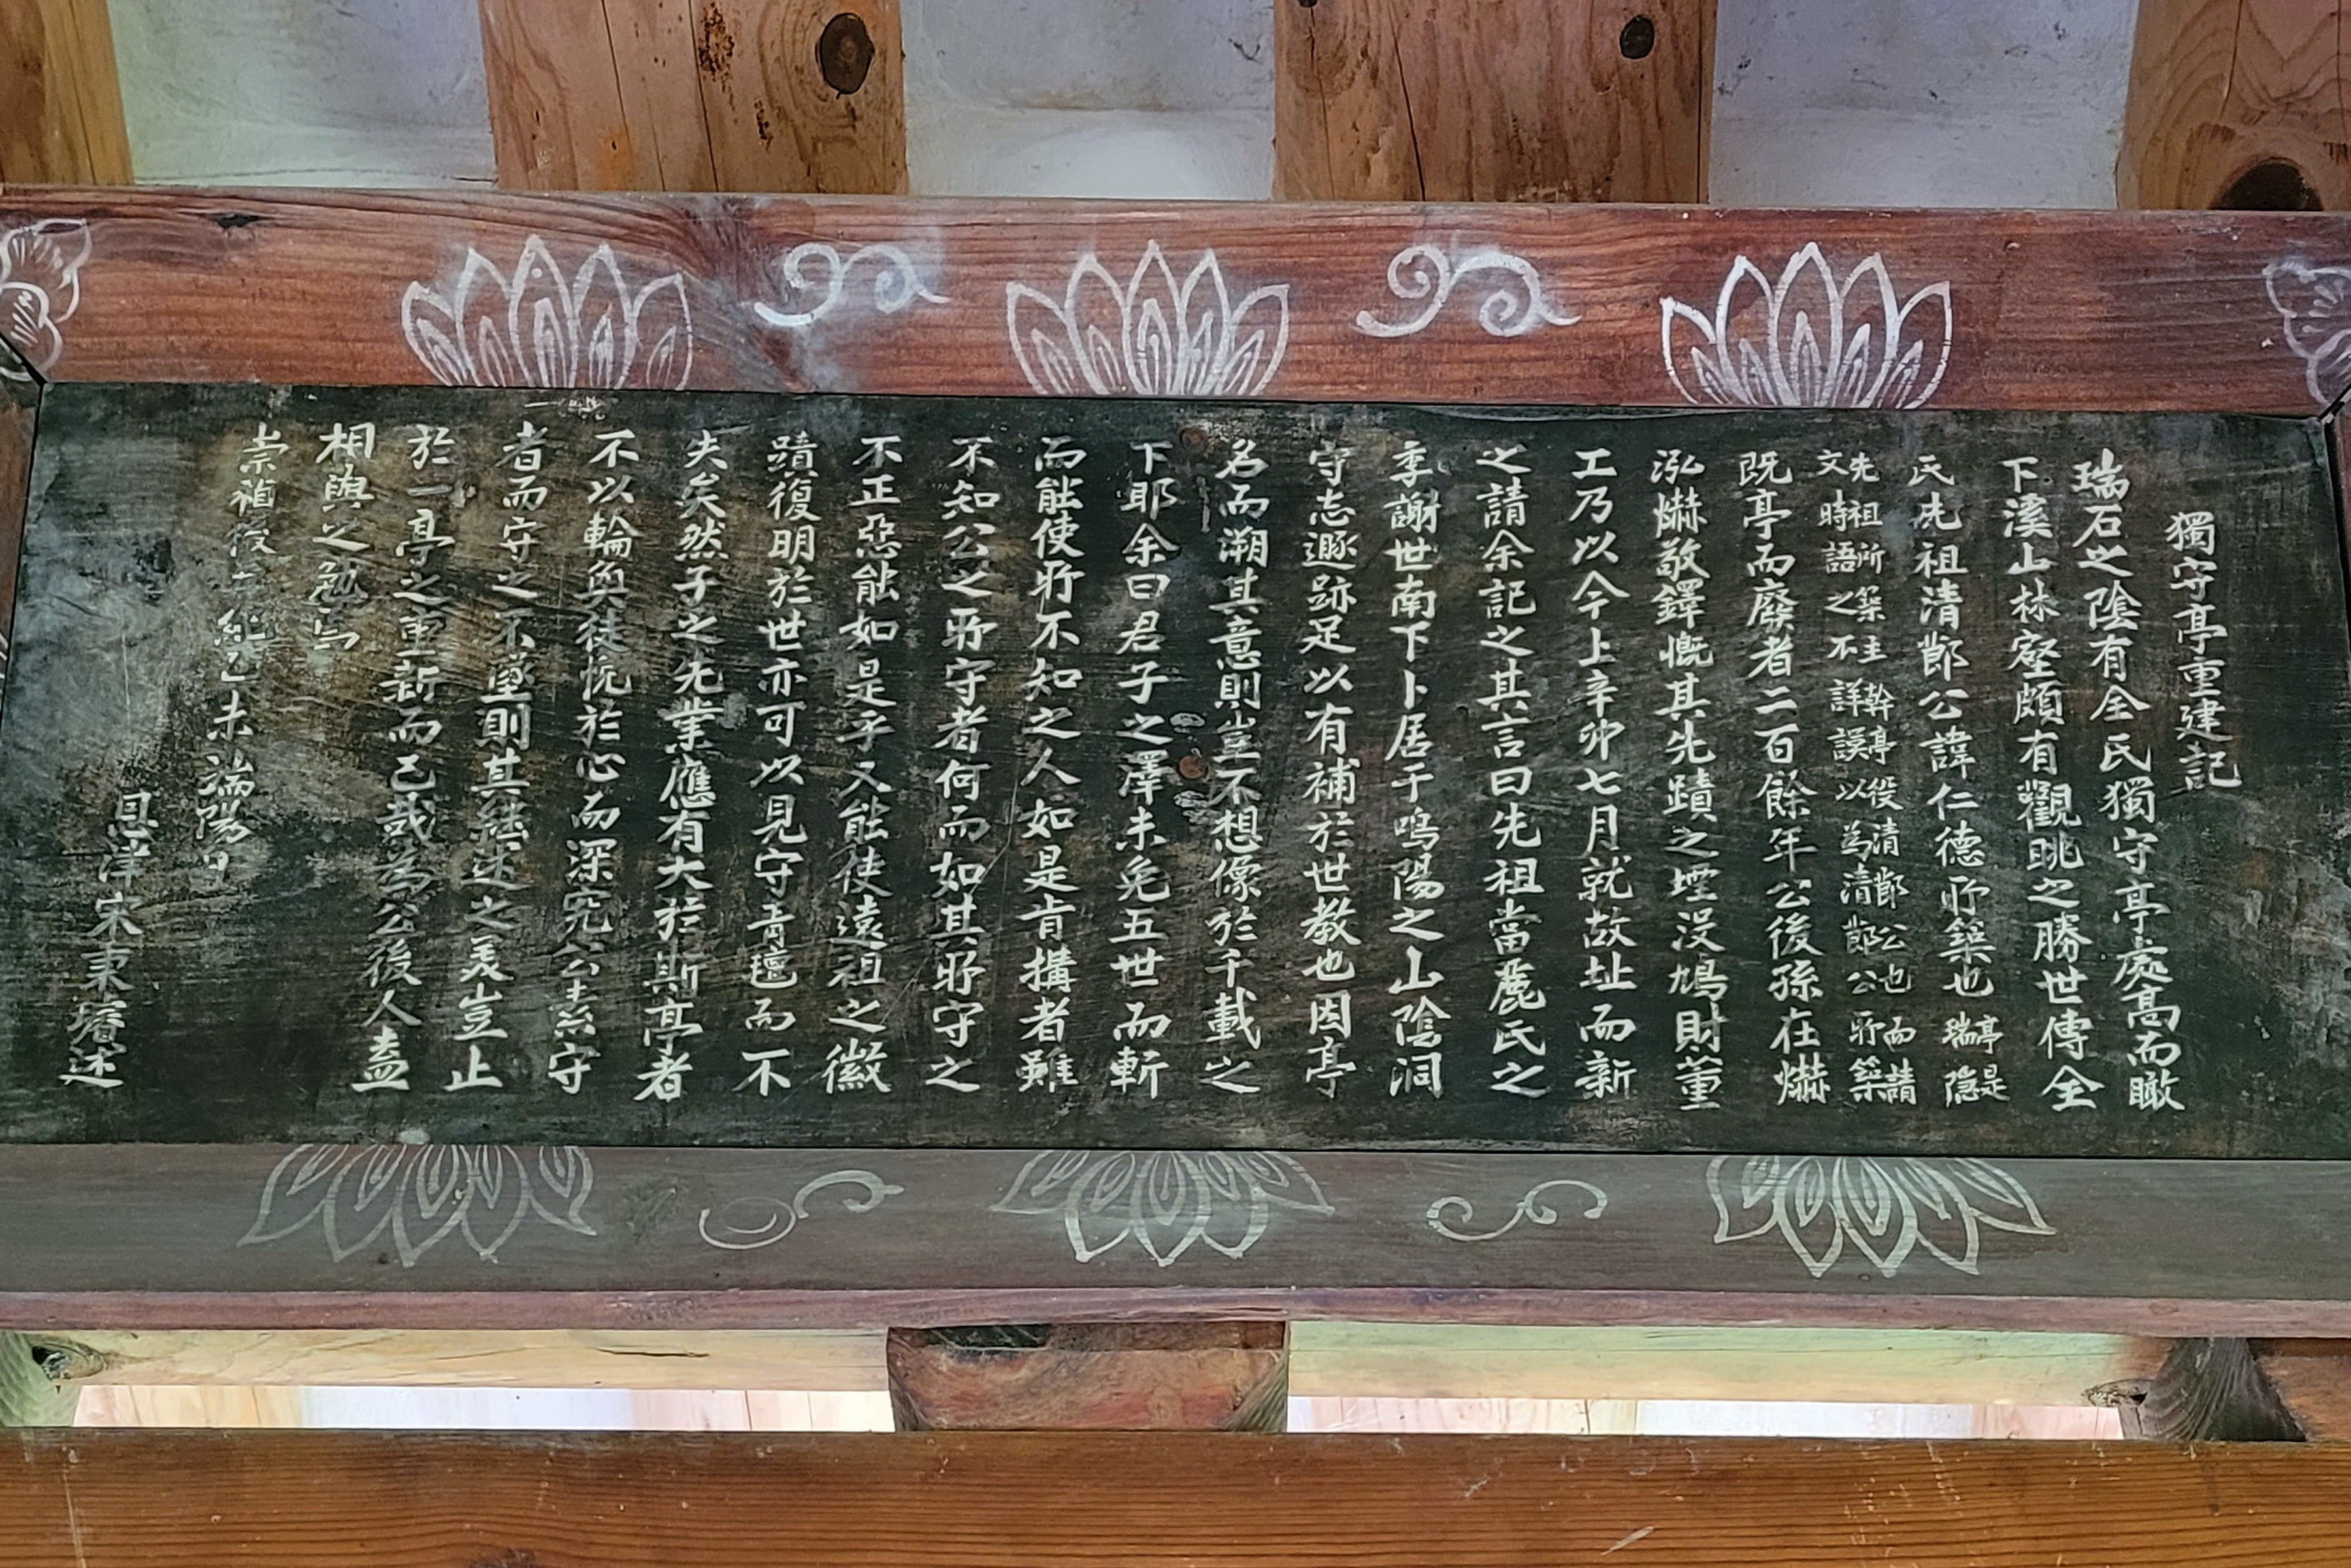 獨守亭重建記
瑞石之陰有全氏獨守亭處高而瞰
下溪山林壑頗有觀眺之勝世傳全
氏先祖清鄫公諱仁德所築也亭是瑞隐
先祖所築主幹亭役清鄫公也而請
文時語之不詳誤以為清鄫公所築
既亭而廢者二百餘年公後孫在爀
泓爀敬鐸慨其先蹟之堙没鳩財董
工乃以今上辛卯七月就故址而新
之請余記之其言曰先祖當麗氏之
季謝世南下卜居于鳴陽之山陰洞
守志遯跡足以有補於世教也因亭
名而溯其意則豈不想像於千載之
下耶余曰君子之澤未免五世而斬
而能使所不知之人如是肯搆者雖
不知公之所守者何而如其所守之
不正惡能如是乎又能使遠祖之徽
蹟復明於世亦可以見守青氊而不
失矣然子之先業應有大於斯亭者
不以輪奐徒侊於心而深究公素守
者而守之不墜則其継述之美豈止
於一亭之重新而已哉為公後人盍
相與之勉焉
崇禎後 乙未端陽日
恩津宋秉璿述